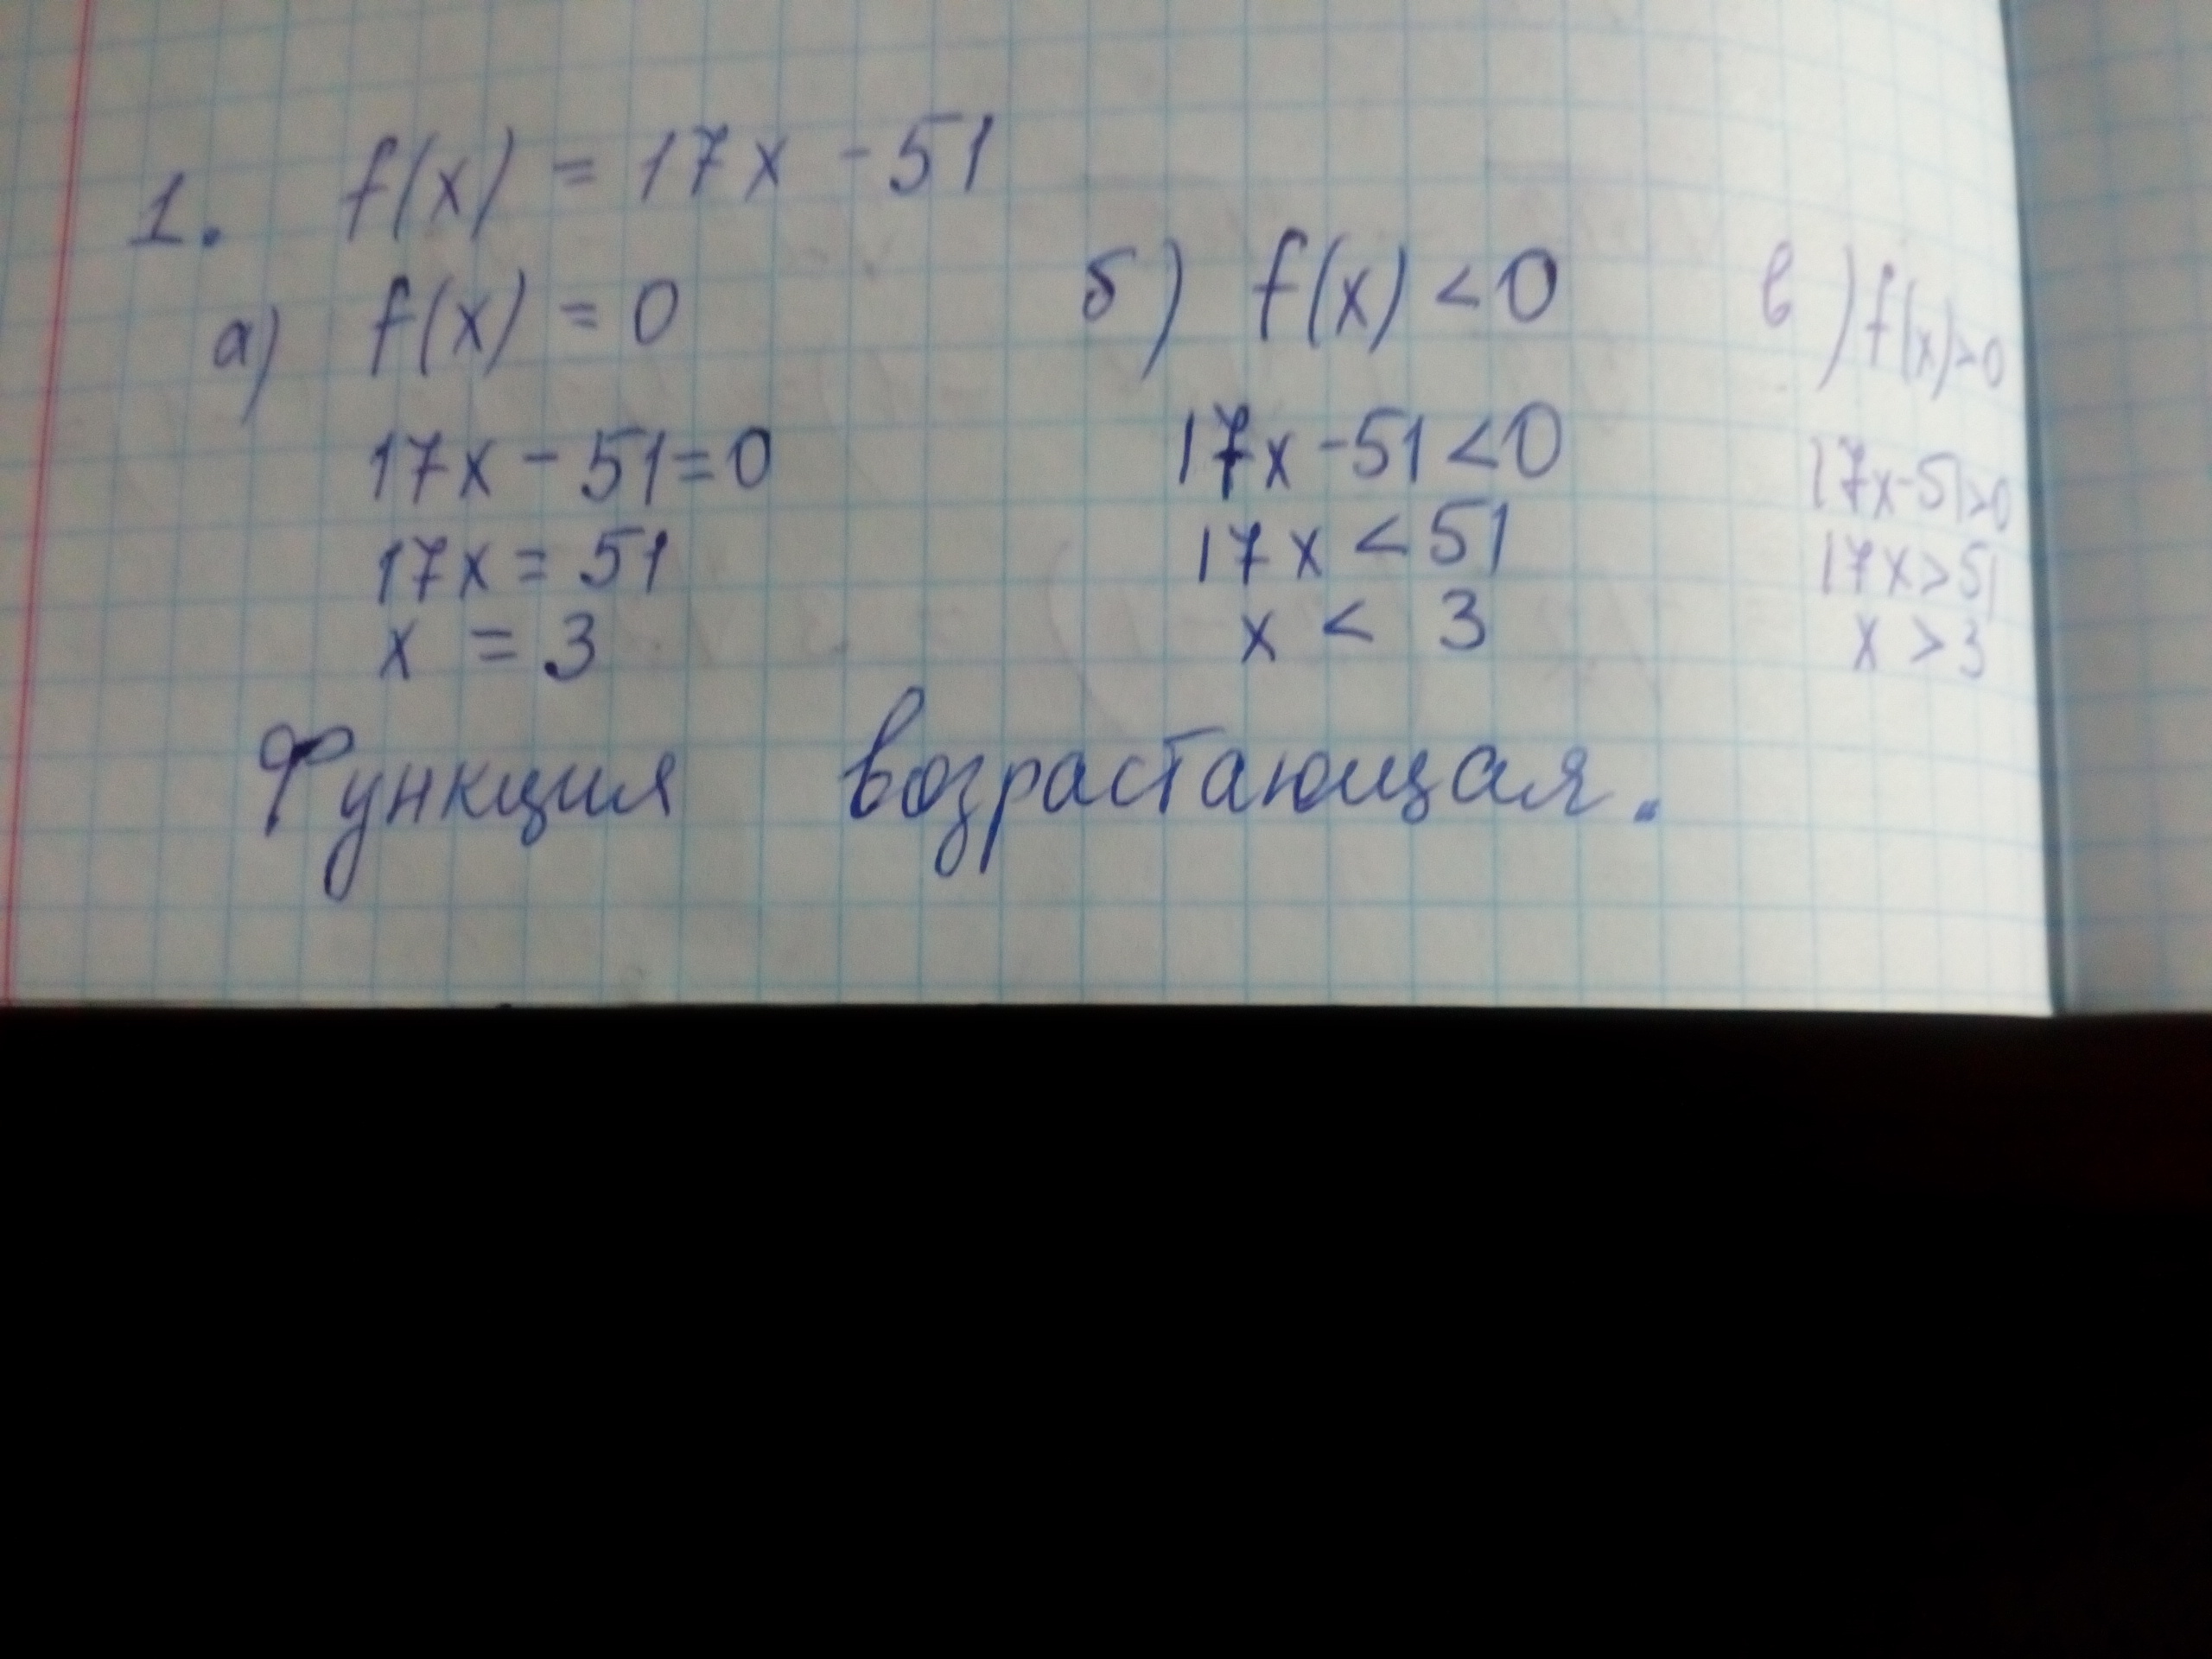 1. f(x) = 17x - 51
а) f(x) = 0
17x - 51 = 0
17x = 51
x = 3
б) f(x) < 0
17x - 51 < 0
17x < 51
x < 3
в) f(x) > 0
17x - 51 > 0
17x > 51
x > 3
Функция возрастающая.